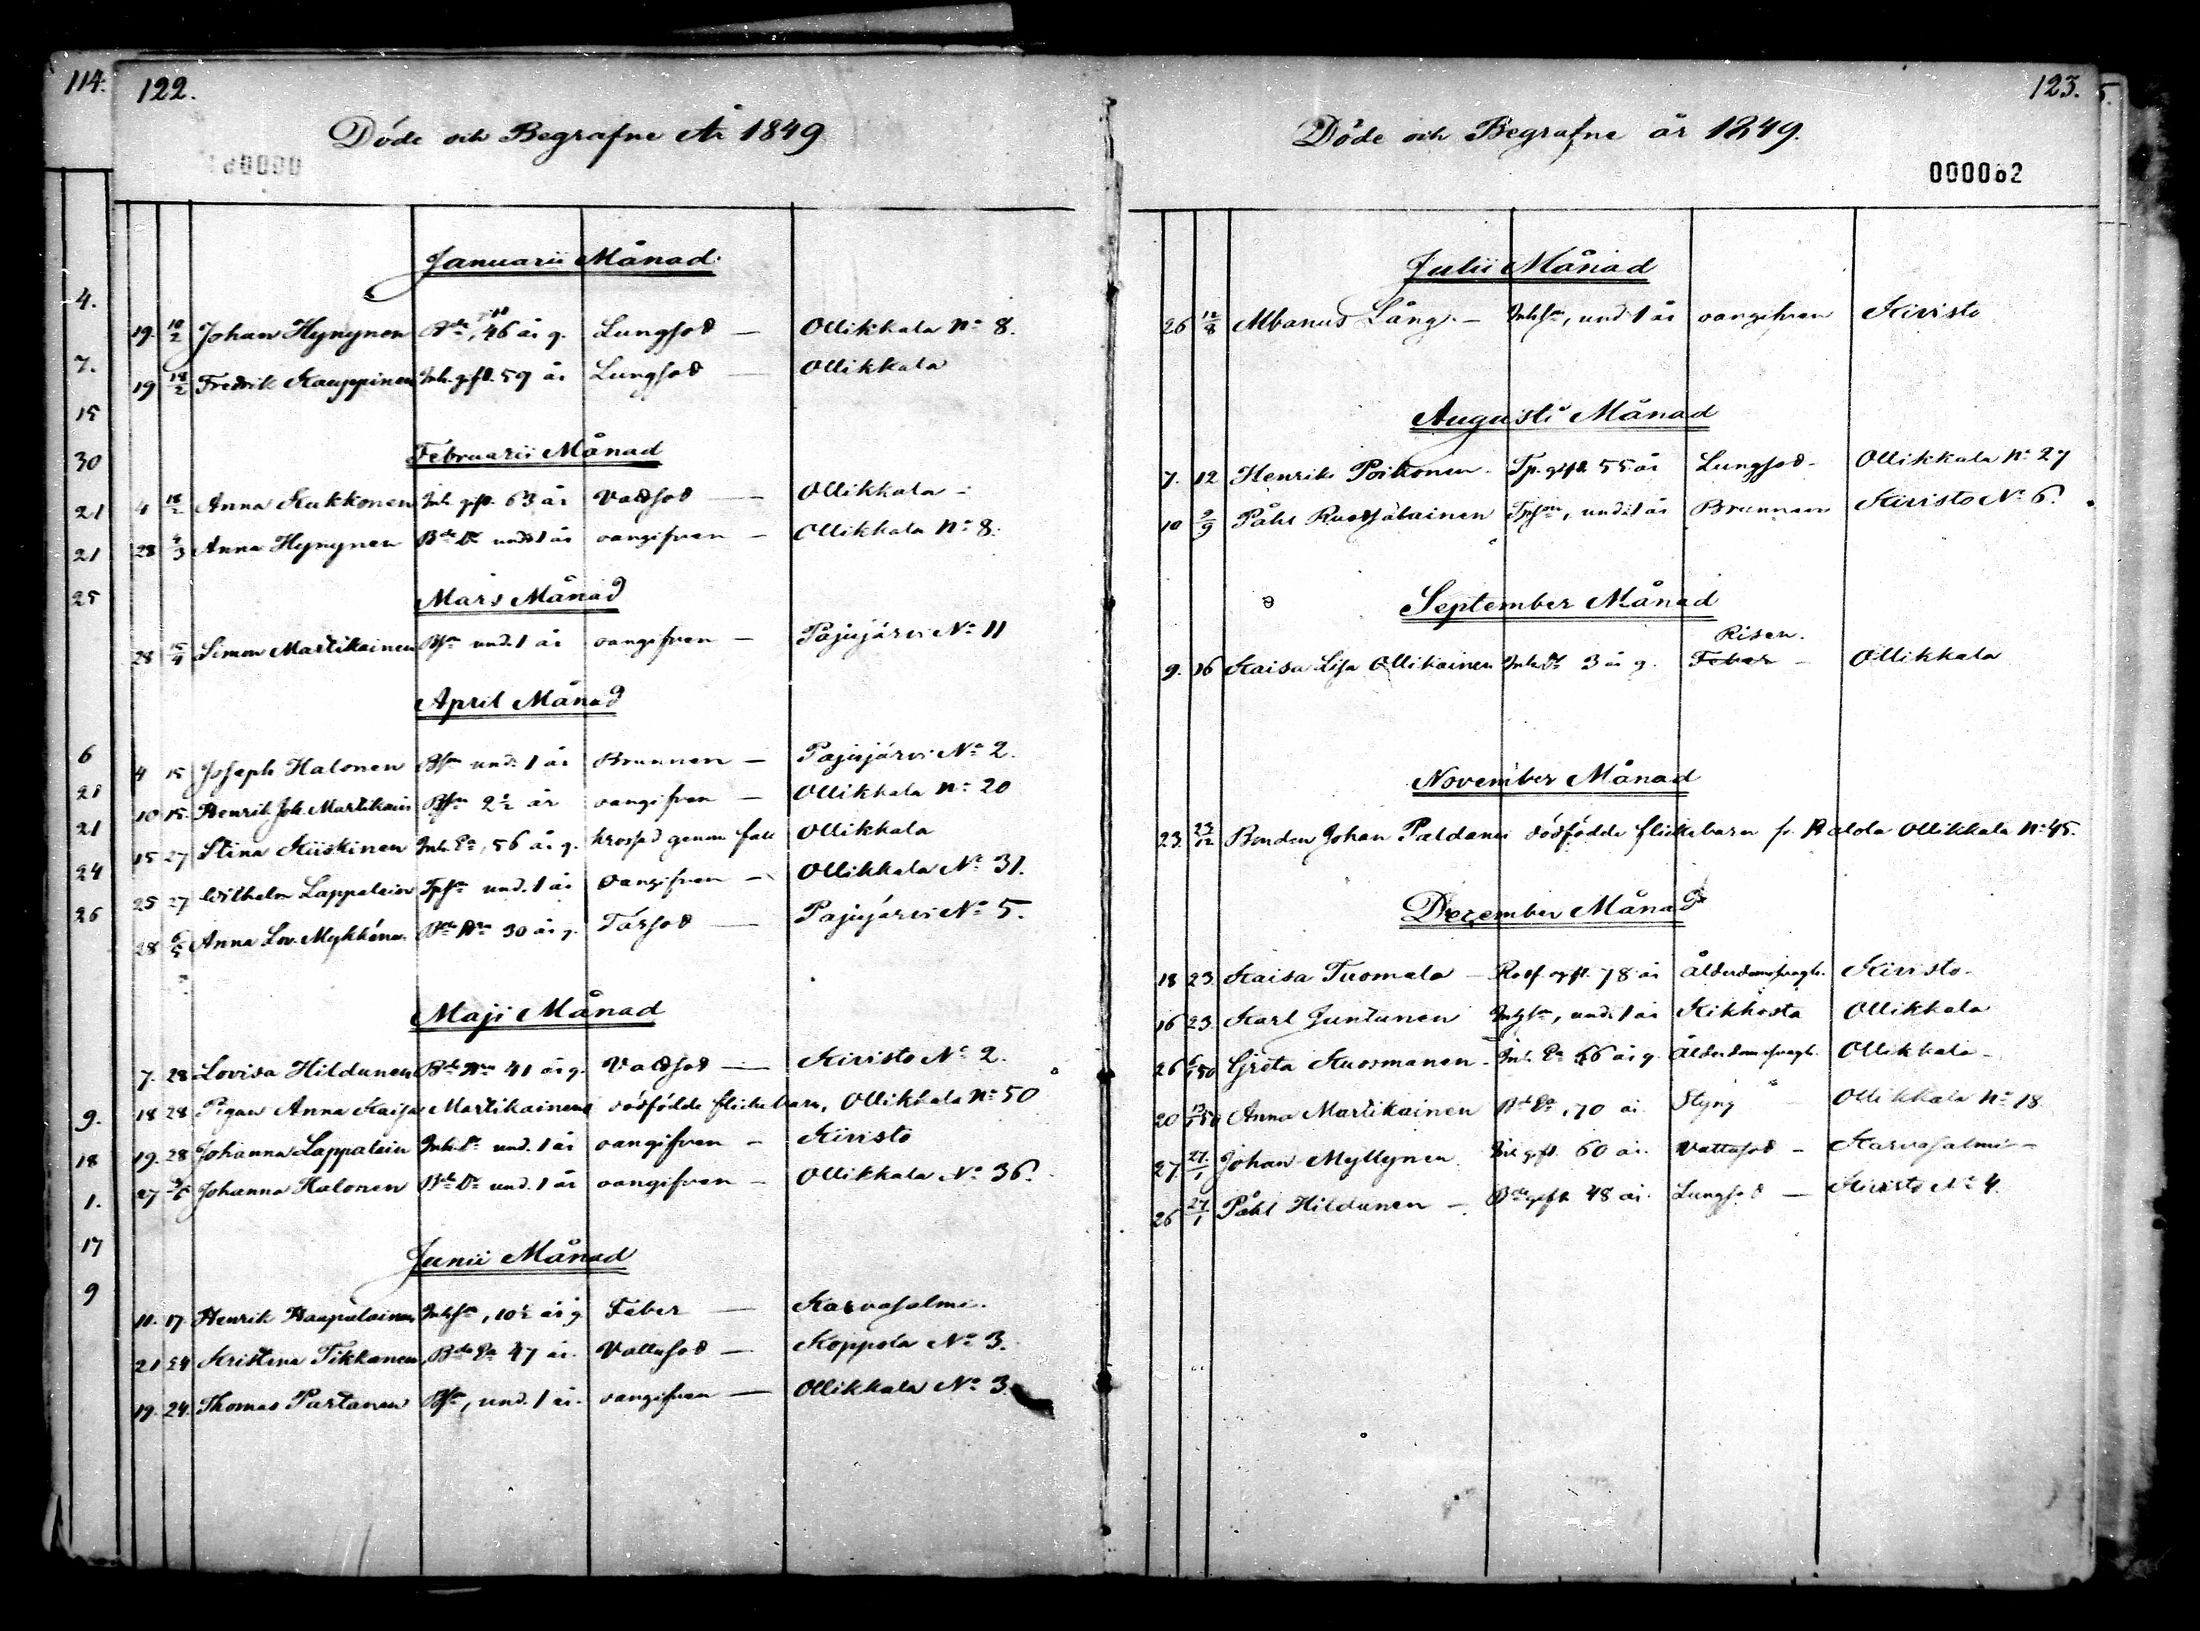 114.
4.
7.
15
30
21
21
25
6
21
21
24
26
9.
18
1.
17
9
122.
Döde och Begrafne År 1849
Januarii Månad.
19. 10/2 Johan Hynynen Bde, gift 46 år g. Lungsot — Ollikkala No 8.
19 18/2 Fredrik Kauppinen Inh. gift. 59 år Lungsot — Ollikkala
Februarii Månad
4 18/2 Anna Kukkonen Inh. gift. 63 år Vattsot — Ollikkala -
28 4/3 Anna Hynynen Bde Dr und 1 år oangifven — Ollikkala No 8.
Mars Månad
28 15/4 Simon Martikainen Bsn und. 1 år oangifven — Pajujärvi No 11
April Månad
4 15 Joseph Halonen Bsn und. 1 år Brunnen — Pajujärvi No 2.
10 15. Henrik Joh. Martikain Bsn 2½ år oangifven — Ollikkala No 20
15 27 Stina Kiiskinen Inh. Ea, 56 år g. krossad genom fall Ollikkala
25 27 Wilhelm Lappalain Tpsn und. 1 år oangifven — Ollikkala No 31.
28 6/5 Anna Lov. Mykkänen Bde Hru 30 år g. Tärsot — Pajujärvi No 5.
Maji Månad
7. 28 Lovisa Hildunen Bde Hru 41 år g. Vattsot — Kiristo No 2.
18 28 Pigan Anna Kaisa Martikainens dödfödde flickebarn, Ollikkala No 50
19. 28 Johanna Lappalain Inh. Dr und. 1 år oangifven — Kiristo
27 3/6 Johanna Halonen Bde Dr und. 1 år oangifven — Ollikkala No 36.
Junii Månad
11. 17 Henrik Haapalainen Inhsn, 10½ år g Feber — Karvasalmi.
21 24 Kristina Tikkanen, Bde Ea 47 år. Vattusot — Koppola No 3.
19. 24. Thomas Partanen Bsn, und. 1 år. oangifven — Ollikkala No 3.
123.
Döde och Begrafne år 1849.
000062
Julii Månad
26 12/8 Albanus Lång. — Inhsn, und 1 år oangifven Kiristo
Augusti Månad
7. 12 Henrik Poikonen. Tp. gift. 55 år Lungsot - Ollikkala No 27
10 2/9 Påhl Ruotsalainen Tpson, und: 1 år Brunnen Kiristo No 6.
September Månad
Risen.
9. 16 Kaisa Lisa Ollikainen Inh. Dr 3 år g. Feber — Ollikkala
November Månad
23. 23/12 Bonden Johan Paldanii dödfödde flickebarn fr. Halola Ollikkala No 45.
December Månad
18 23. Kaisa Tuomala — Rotf. ogift. 78 år Ålderdomsvagh. Kiristo -
16 23. Karl Juntunen Inhsn, und: 1 år Kikhosta Ollikkala
26 6/1 50 Greta Kuosmanen - Inh. Ea 66 år g. Ålderdomsvagh. Ollikkala -
20 13/1 50 Anna Martikainen Bde Ea, 70 år Styng Ollikkala No 18
27 27/1 Johan Myllynen Inh gift. 60 år. Vattusot — Karvasalmi —
26 27/1 Påhl Hildunen — Bde gift. 48 år. Lungsot — Kiristo No 4.